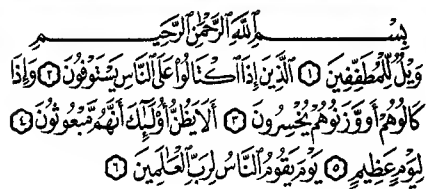 بِسْمِ ٱللَّهِ ٱلرَّحْمَٰنِ ٱلرَّحِيمِ
وَيْلٌ لِّلْمُطَفِّفِينَ ١ ٱلَّذِينَ إِذَا ٱكْتَالُوا۟ عَلَى ٱلنَّاسِ يَسْتَوْفُونَ ٢ وَإِذَا
كَالُوهُمْ أَو وَّزَنُوهُمْ يُخْسِرُونَ ٣ أَلَا يَظُنُّ أُو۟لَٰٓئِكَ أَنَّهُم مَّبْعُوثُونَ ٤
لِيَوْمٍ عَظِيمٍ ٥ يَوْمَ يَقُومُ ٱلنَّاسُ لِرَبِّ ٱلْعَٰلَمِينَ ٦